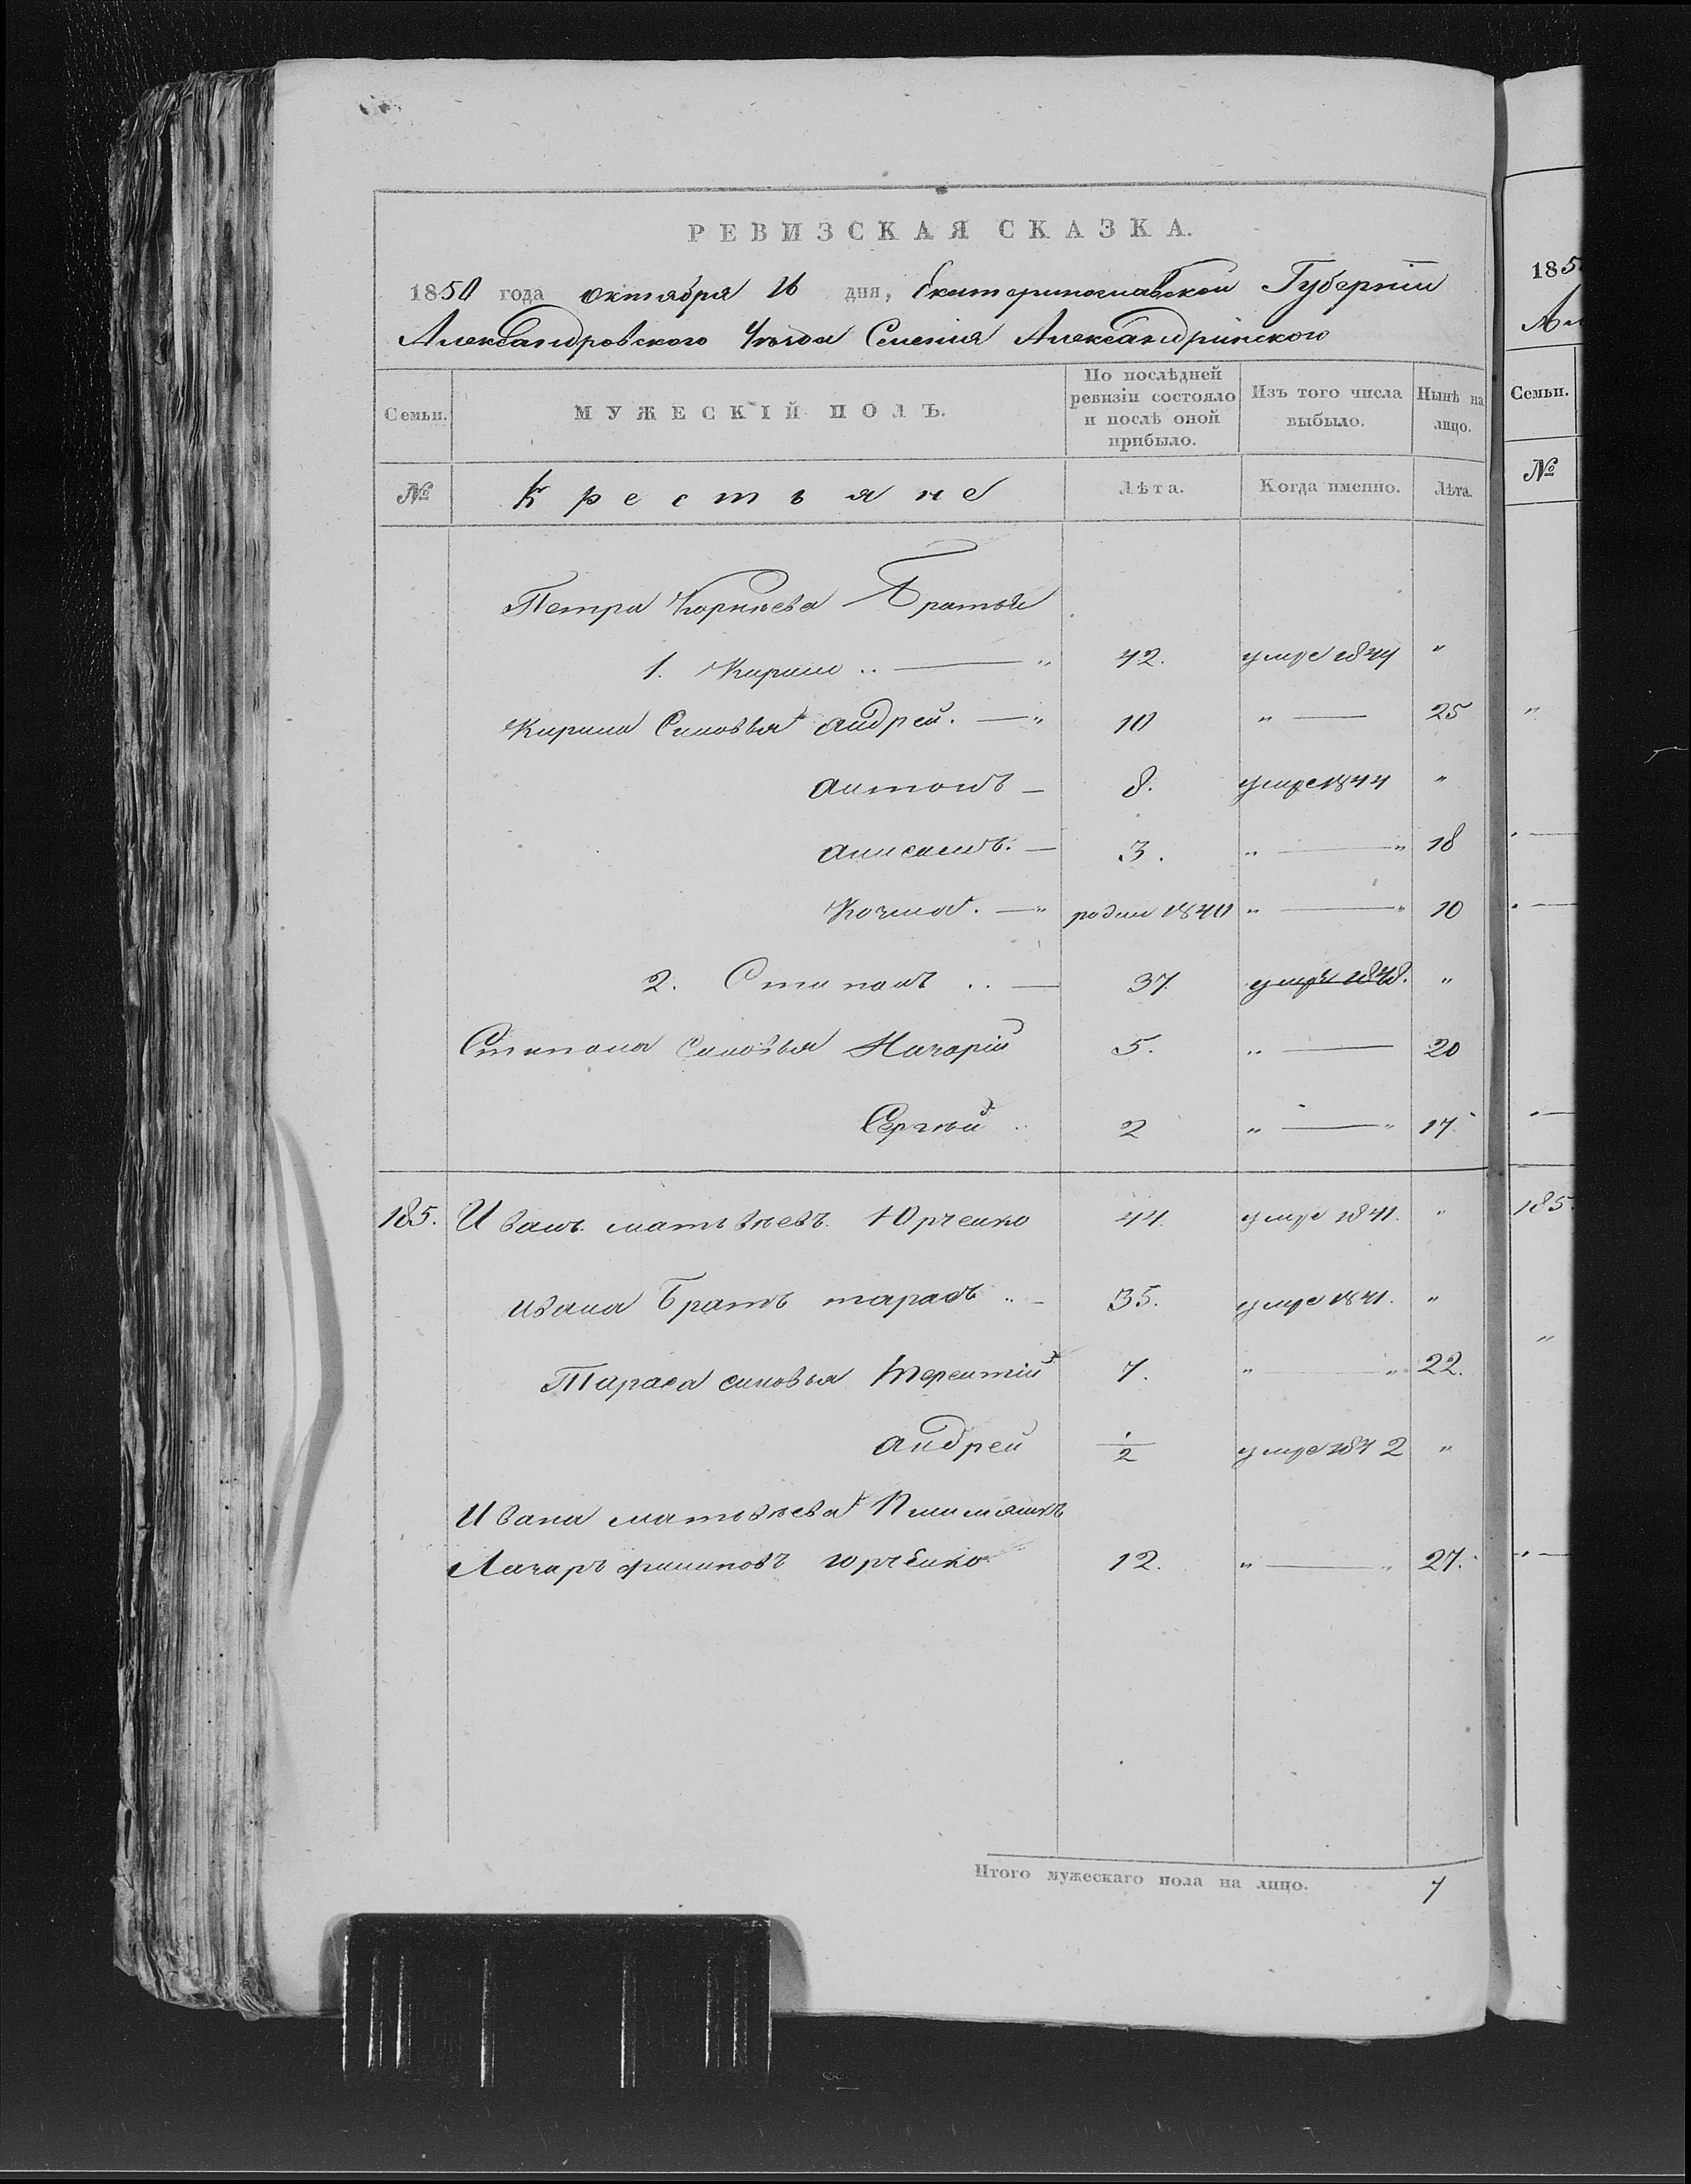 РЕВИЗСКАЯ СКАЗКА.
1850 года октября 16 дня, Екатеринославской Губернiи
Александровского Уѣзда Селенія Александринского
Семьи. МУЖЕСКІЙ ПОЛЪ. По послѣдней ревизіи состояло и послѣ оной прибыло. Изъ того числа выбыло. Нынѣ на лицо.
№ Крестьяне Лѣта. Когда именно. Лѣта.
Петра Корнѣева Братья
1. Кирило .. — " 42. умре 1844 "
Кирила Синовья Андрей. — " 10 " — 25
Антонъ — 8. умре 1844 "
Анисимъ. — 3. " — " 18
Козма. — " родил 1840 " — " 10
2. Степанъ .. — 37 умре 1848. "
Степана Синовья Назарій 5. " — 20
Сергѣй .. 2 " — " 17.
185. Иванъ матвѣевъ Юрченко 44. умре 1841. "
Ивана Братъ тарасъ .. — 35. умре 1841. "
Тараса синовья терентій 7. " — " 22.
Андрей 1/2 умре 1842 "
Ивана матвѣева Племяникъ
Лазаръ филиповъ юрченко 12. " — " 27.
Итого мужескаго пола на лицо. 7
185
Ал
Семьи.
№
185.